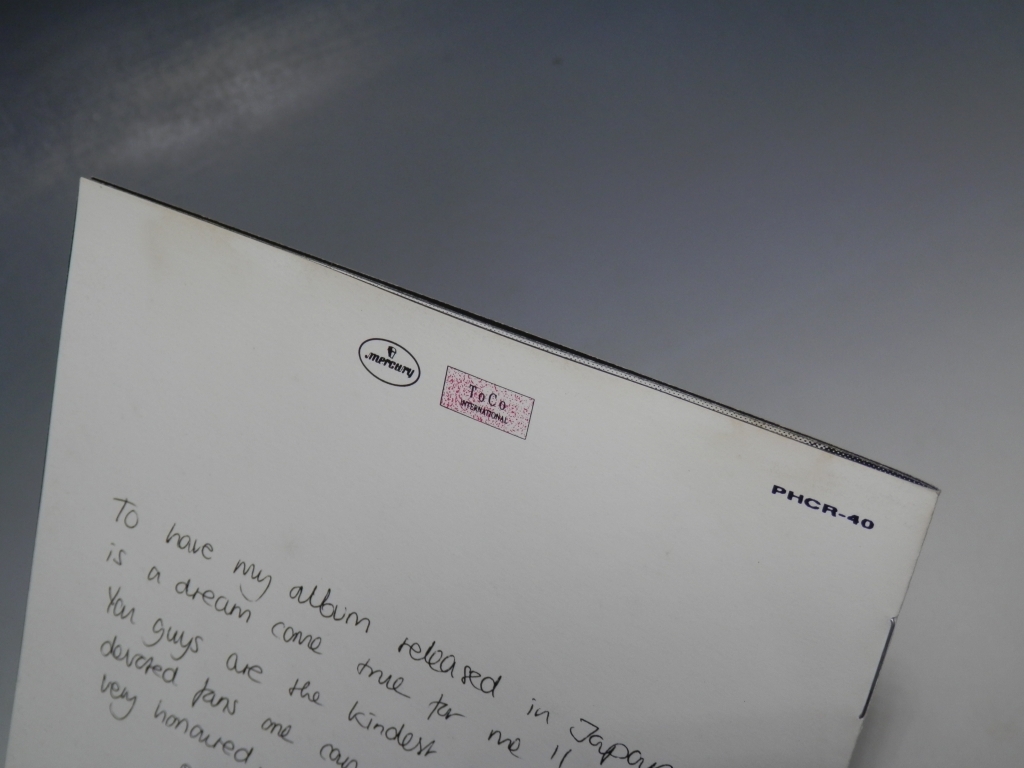 mercury
ToCo
INTERNATIONAL
PHCR-40
To have my album released in Japan
is a dream come true for me !!
You guys are the kindest
devoted fans one can
very honoured